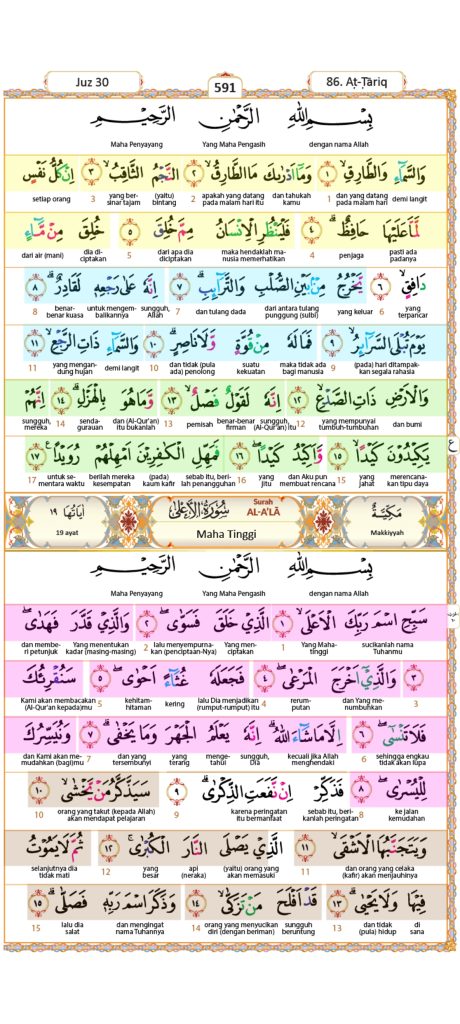 Juz 30
591
86. Aṭ-Ṭāriq
بِسْمِ اللّٰهِ الرَّحْمٰنِ الرَّحِيْمِ
dengan nama Allah Yang Maha Pengasih Maha Penyayang
وَالسَّمَاۤءِ وَالطَّارِقِۙ ١ وَمَآ اَدْرٰىكَ مَا الطَّارِقُۙ ٢ النَّجْمُ الثَّاقِبُۙ ٣ اِنْ كُلُّ نَفْسٍ
demi langit dan yang datang pada malam hari 1 dan tahukah kamu apakah yang datang pada malam hari itu 2 (yaitu) bintang yang bersinar tajam 3 setiap orang
لَّمَّا عَلَيْهَا حَافِظٌۗ ٤ فَلْيَنْظُرِ الْاِنْسَانُ مِمَّ خُلِقَ ٥ خُلِقَ مِنْ مَّاۤءٍ
pasti ada padanya penjaga 4 maka hendaklah manusia memerhatikan dari apa dia diciptakan 5 dia diciptakan dari air (mani)
دَافِقٍۙ ٦ يَّخْرُجُ مِنْۢ بَيْنِ الصُّلْبِ وَالتَّرَاۤىِٕبِۗ ٧ اِنَّهٗ عَلٰى رَجْعِهٖ لَقَادِرٌۗ ٨
yang terpancar 6 yang keluar dari antara tulang punggung (sulbi) dan tulang dada 7 sungguh, Allah untuk mengembalikannya benar-benar kuasa 8
يَوْمَ تُبْلَى السَّرَاۤىِٕرُۙ ٩ فَمَا لَهٗ مِنْ قُوَّةٍ وَّلَا نَاصِرٍۗ ١٠ وَالسَّمَاۤءِ ذَاتِ الرَّجْعِۙ ١١
(pada) hari ditampakkan segala rahasia 9 maka tidak ada bagi manusia suatu kekuatan dan tidak (pula ada) penolong 10 demi langit yang mengandung hujan 11
وَالْاَرْضِ ذَاتِ الصَّدْعِۙ ١٢ اِنَّهٗ لَقَوْلٌ فَصْلٌۙ ١٣ وَّمَا هُوَ بِالْهَزْلِۗ ١٤ اِنَّهُمْ
dan bumi yang mempunyai tumbuh-tumbuhan 12 sungguh, (Al-Qur'an) itu benar-benar firman pemisah 13 dan (Al-Qur'an) itu bukanlah sendagurauan 14 sungguh, mereka
يَكِيْدُوْنَ كَيْدًاۙ ١٥ وَّاَكِيْدُ كَيْدًاۖ ١٦ فَمَهِّلِ الْكٰفِرِيْنَ اَمْهِلْهُمْ رُوَيْدًا ١٧
merencanakan tipu daya yang jahat 15 dan Aku pun membuat rencana yang jitu 16 sebab itu, berilah penangguhan (pada) kaum kafir berilah mereka kesempatan untuk sementara waktu 17
ع
مَكِّيَّةٌ
Makkiyyah
سُوْرَةُ الْاَعْلٰى
Surah AL-A'LĀ
Maha Tinggi
اٰيَاتُهَا ١٩
19 ayat
بِسْمِ اللّٰهِ الرَّحْمٰنِ الرَّحِيْمِ
dengan nama Allah Yang Maha Pengasih Maha Penyayang
سَبِّحِ اسْمَ رَبِّكَ الْاَعْلَىۙ ١ الَّذِيْ خَلَقَ فَسَوّٰىۖ ٢ وَالَّذِيْ قَدَّرَ فَهَدٰىۖ
sucikanlah nama Tuhanmu Yang Mahatinggi 1 Yang menciptakan lalu menyempurnakan (penciptaan-Nya) 2 Yang menentukan kadar (masing-masing) dan memberi petunjuk
٣ وَالَّذِيْٓ اَخْرَجَ الْمَرْعٰىۖ ٤ فَجَعَلَهٗ غُثَاۤءً اَحْوٰىۖ ٥ سَنُقْرِئُكَ
3 dan Yang menumbuhkan rerumputan 4 lalu Dia menjadikan (rumput-rumput) itu kering kehitamhitaman 5 Kami akan membacakan (Al-Qur'an kepada)mu
فَلَا تَنْسٰىٓۖ ٦ اِلَّا مَا شَاۤءَ اللّٰهُۗ اِنَّهٗ يَعْلَمُ الْجَهْرَ وَمَا يَخْفٰىۗ ٧ وَنُيَسِّرُكَ
sehingga engkau tidak akan lupa 6 kecuali jika Allah menghendaki sungguh, Dia mengetahui yang terang dan yang tersembunyi 7 dan Kami akan memudahkan (bagi)mu
لِلْيُسْرٰىۖ ٨ فَذَكِّرْ اِنْ نَّفَعَتِ الذِّكْرٰىۗ ٩ سَيَذَّكَّرُ مَنْ يَّخْشٰىۙ ١٠
ke jalan kemudahan 8 sebab itu, berikanlah peringatan karena peringatan itu bermanfaat 9 orang yang takut (kepada Allah) akan mendapat pelajaran 10
وَيَتَجَنَّبُهَا الْاَشْقَىۙ ١١ الَّذِيْ يَصْلَى النَّارَ الْكُبْرٰىۚ ١٢ ثُمَّ لَا يَمُوْتُ
dan orang yang celaka (kafir) akan menjauhinya 11 (yaitu) orang yang akan memasuki api (neraka) yang besar 12 selanjutnya dia tidak mati
فِيْهَا وَلَا يَحْيٰىۗ ١٣ قَدْ اَفْلَحَ مَنْ تَزَكّٰىۙ ١٤ وَذَكَرَ اسْمَ رَبِّهٖ فَصَلّٰىۗ ١٥
di sana dan tidak (pula) hidup 13 sungguh beruntung orang yang menyucikan diri (dengan beriman) 14 dan mengingat nama Tuhannya lalu dia salat 15